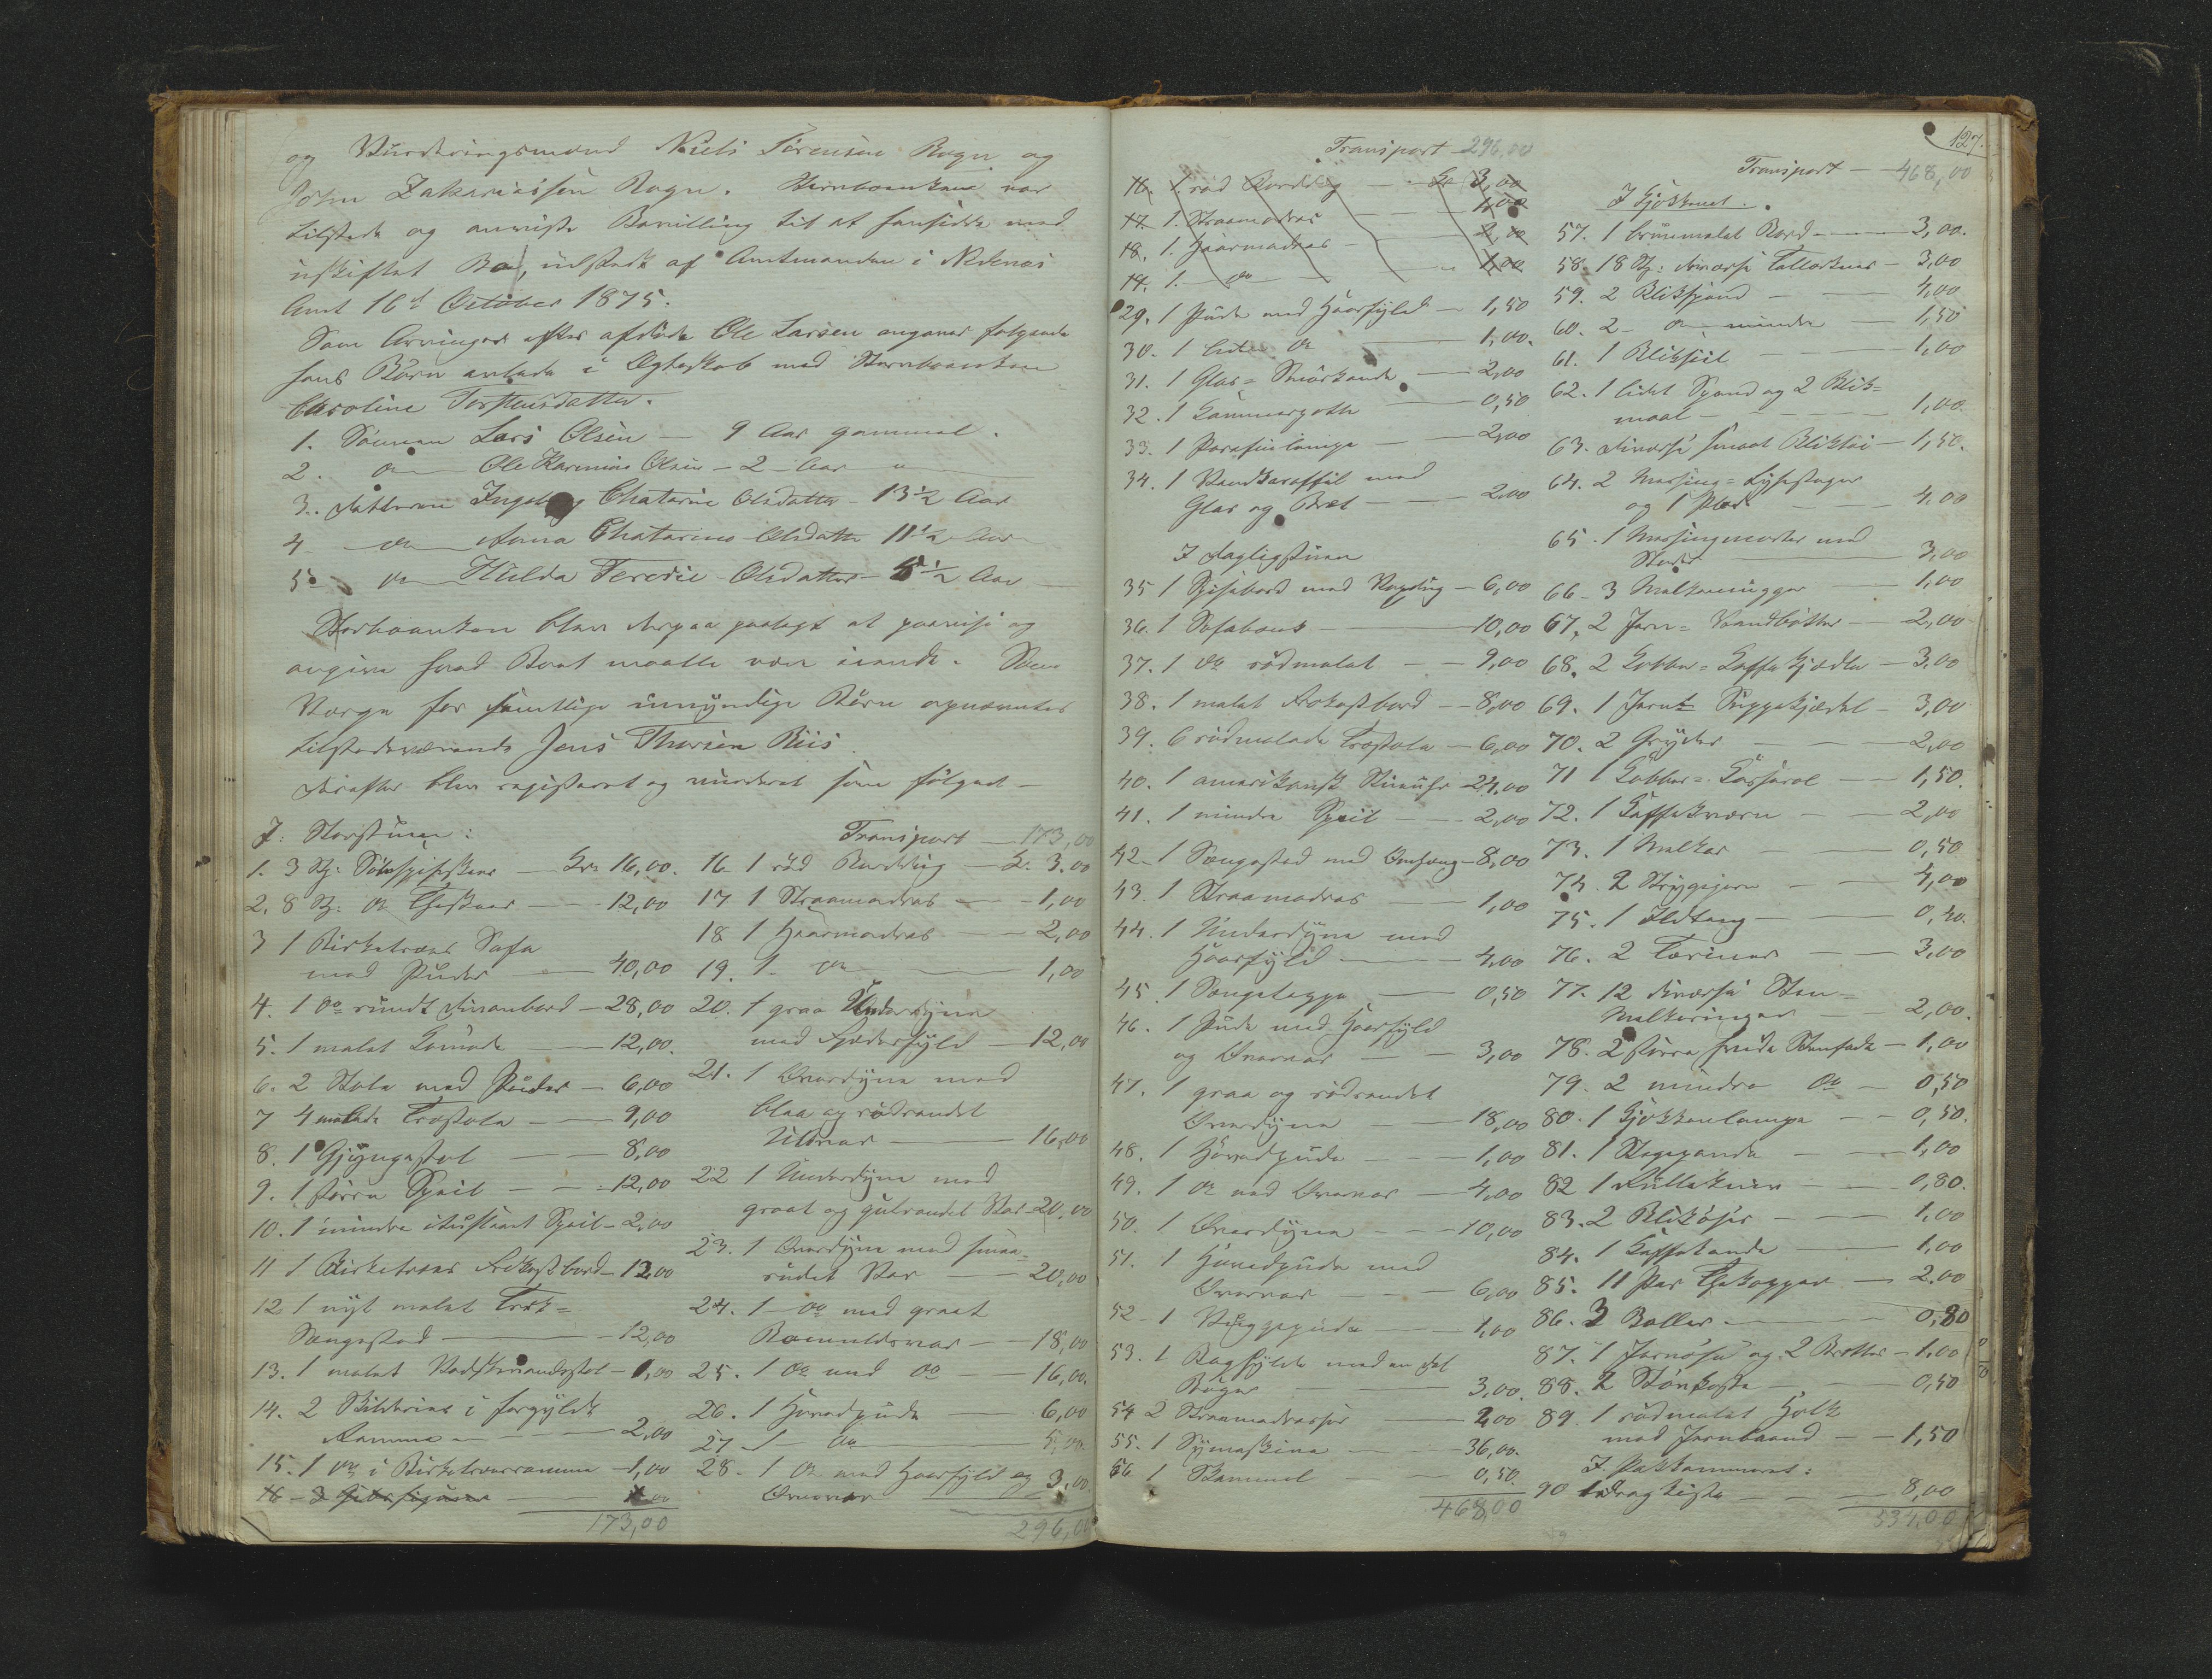 og Vurderingsmænd Niels Terensen Rogn og
John Zakariassen Rogn. Sterboenken var
tilstede og anviste Bevilling til at hensidde med
uskiftet Bo, udstedt af Amtmanden i Nedenæs
Amt 16d October 1875.
Som Arvinger efter afdøde Ole Larsen angaves følgende
hans Børn avlede i Egteskab med Sterboenken
Caroline Torstensdatter.
1. Sønnen Lars Olsen — 9 Aar gammel.
2. do Ole Karenius Olsen — 2 — Aar
3. Datteren Ingeborg Chatarine Olsdatter — 13 1/2 Aar
4 do Anna Chatarine Olsdatter 11 1/2 Aar
5 do Hulda Teredie Olsdatter — 5 1/2 Aar
Sterboenken blev derpaa paalagt at paavise og
angive hvad Boet maatte være eiende. Som
Værge for samtlige umyndige Børn opnævntes
tilstedeværende Jens Thorsen Riis.
Derefter blev registeret og vurderet som følgende —
I: Storstuen:
1. 3 St: Sølvspiseskeer — Kr. 16,00.
2. 8 St: do Theskeer — 12,00
3 1 Birketræes Sofa
med Puder — 40,00
4. 1 do rundt Divanbord — 28,00
5. 1 malet Komode — 12,00.
6. 2 Stole med Puder — 6,00
7 4 malede Træstole — 9,00
8. 1 Gyngestol — 8,00
9. 1 større Speil — 12,00
10. 1 mindre ituslaaet Speil — 2,00
11 1 Birketræes Frokostbord — 12,00
12 1 nyt malet Træk-
Sengested — 12,00
13. 1 malet Vadskevandsstol — 1,00
14. 2 Skilderier i forgyldt
Ramme — 2,00
15. 1 do i Birketræesramme — 1,00
16 — 3 Gibsfigurer
173,00
Transport — 173,00
16. 1 rød Borddug — K. 3.00
17. 1 Straamadras — 1,00
18 1 Haarmadras — 2,00
19. 1 do — 1,00
20. 1 graa Underdyne
med Fjæderfyld — 12,00
21. 1 Overdyne med
blaa og rødrandet
Uldvar — 16,00
22 1 Underdyne med
graat og gulrandet Var — 20,00
23. 1 Overdyne med smaa-
rudet Var — 20,00
24. 1 do med graat
Bomuldsvar — 18,00
25. 1 do med do — 16,00.
26. 1 Hovedpude — 6,00
27 1 do — 5,00.
28. 1 do med Haarfyld og
Overvar — 3,00
296,00
Transport 296,00
16. 1 rød Borddug — Kr 3,00
17. 1. Straamadras — 1,00
18. 1. Haarmadras — 2,00
19. 1. do — 1,00
29. 1 Pude med Haarfyld — 1,50
30. 1 liden do — 1,00.
31. 1 Glas-Smørkande — 2,00
32. 1 Kammerpotte — 0,50
33. 1 Parafinlampe — 2,00
34. 1 Vandkaraffel med
Glas og Bret — 2,00
I Dagligstuen
35 1 Spisebord med Voxdug — 6,00
36. 1 Sofabænk — 10,00
37. 1 do rødmalet — 9,00
38. 1 malet Frokostbord — 8,00
39. 6 rødmalede Træstole — 6,00
40. 1 amerikansk Stueuhr — 24,00
41. 1 mindre Speil — 2,00
42. 1 Sengested med Omhæng — 8,00
43. 1 Straamadras — 1,00
44. 1 Underdyne med
Haarfyld — 4,00
45. 1 Sengeteppe — 0,50
46. 1 Pude med Haarfyld
og Overvar — 3,00
47. 1 graa og rødrandet
Overdyne — 18,00
48. 1 Hovedpude — 1,00
49. 1 do med Overvar — 4,00
50. 1 Overdyne — 10,00
51. 1 Hovedpude med
Overvar — 6,00
52. 1 Vuggepude — 1,00
53. 1 Boghylde med en Del
Bøger — 3,00.
54 2 Straamadrasser — 2,00
55. 1 Symaskine — 36,00.
56 1 Skammel — 0,50
468,00
127.
Transport — 468,00
I Kjøkkenet.
57. 1 brunmalet Bord — 3,00.
58. 18 St: diverse Tallerkner — 3,00
59. 2 Blikspand — 4,00
60. 2 do mindre — 1,50
61. 1 Bliksiil — 1,00
62. 1 lidet Spand og 2 Blik-
maal — 1,00
63. diverse smaat Bliktøi — 1,50.
64. 2 Messing-Lysestager
og 1 Plet — 4,00
65. 1 Messingmorter med
Støder — 3,00
66. 3 Melkemugger — 1,00
67. 2 Jern-Vandbøtter — 2,00
68. 2 Kobber-Kaffekjedler — 3,00
69. 1 Jernt Suppekjedel — 3,00
70. 2 Gryder — 2,00
71 1 Kobber-Kasserol — 1,50.
72. 1 Kaffekværn — 2,00
73. 1 Melkar — 0,50
74. 2 Strygejern — 4,00
75. 1 Ildtang — 0,40.
76. 2 Tæriner — 3,00
77. 12 diverse Sten-
Melkeringer — 2,00.
78. 2 større hvide Stenfade — 1,00
79. 2 mindre do — 0,50
80. 1 Kjøkkenlampe — 0,50.
81. 1 Stegepande — 1,00
82 1 — 0,80.
83. 2 Blikøser — 1,00
84. 1 Kaffekande — 1,00
85. 11 Par Thekopper — 2,00
86. 3 Boller — 0,80
87. 1 Jernøse og 2 Bretter — 1,00
88. 2 — 0,50
89. 1 rødmalet Holk
med Jernbaand — 1,50
I Pakkammeret:
90 1 Dragkiste — 8,00
534,00